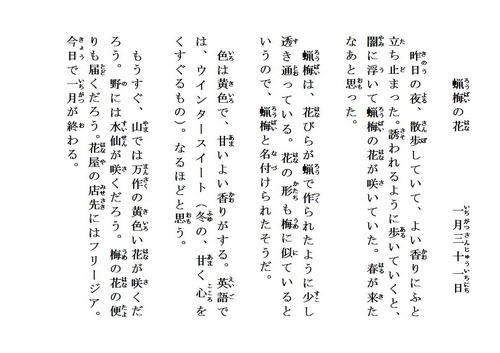 蝋梅の花　一月三十一日
昨日の夜、散歩していて、よい香りにふと
立ち止まった。誘われるように歩いていくと、
闇に浮いて蝋梅の花が咲いていた。春が来た
なあと思った。
蝋梅は、花びらが蝋で作られたように少し
透き通っている。花の形も梅に似ていると
いうので、蝋梅と名付けられたそうだ。
色は黄色で、甘いよい香りがする。英語で
は、ウインタースイート（冬の、甘く心を
くすぐるもの）。なるほどと思う。
もうすぐ、山では万作の黄色い花が咲くだ
ろう。野には水仙が咲くだろう。梅の花の便
りも届くだろう。花屋の店先にはフリージア。
今日で一月が終わる。